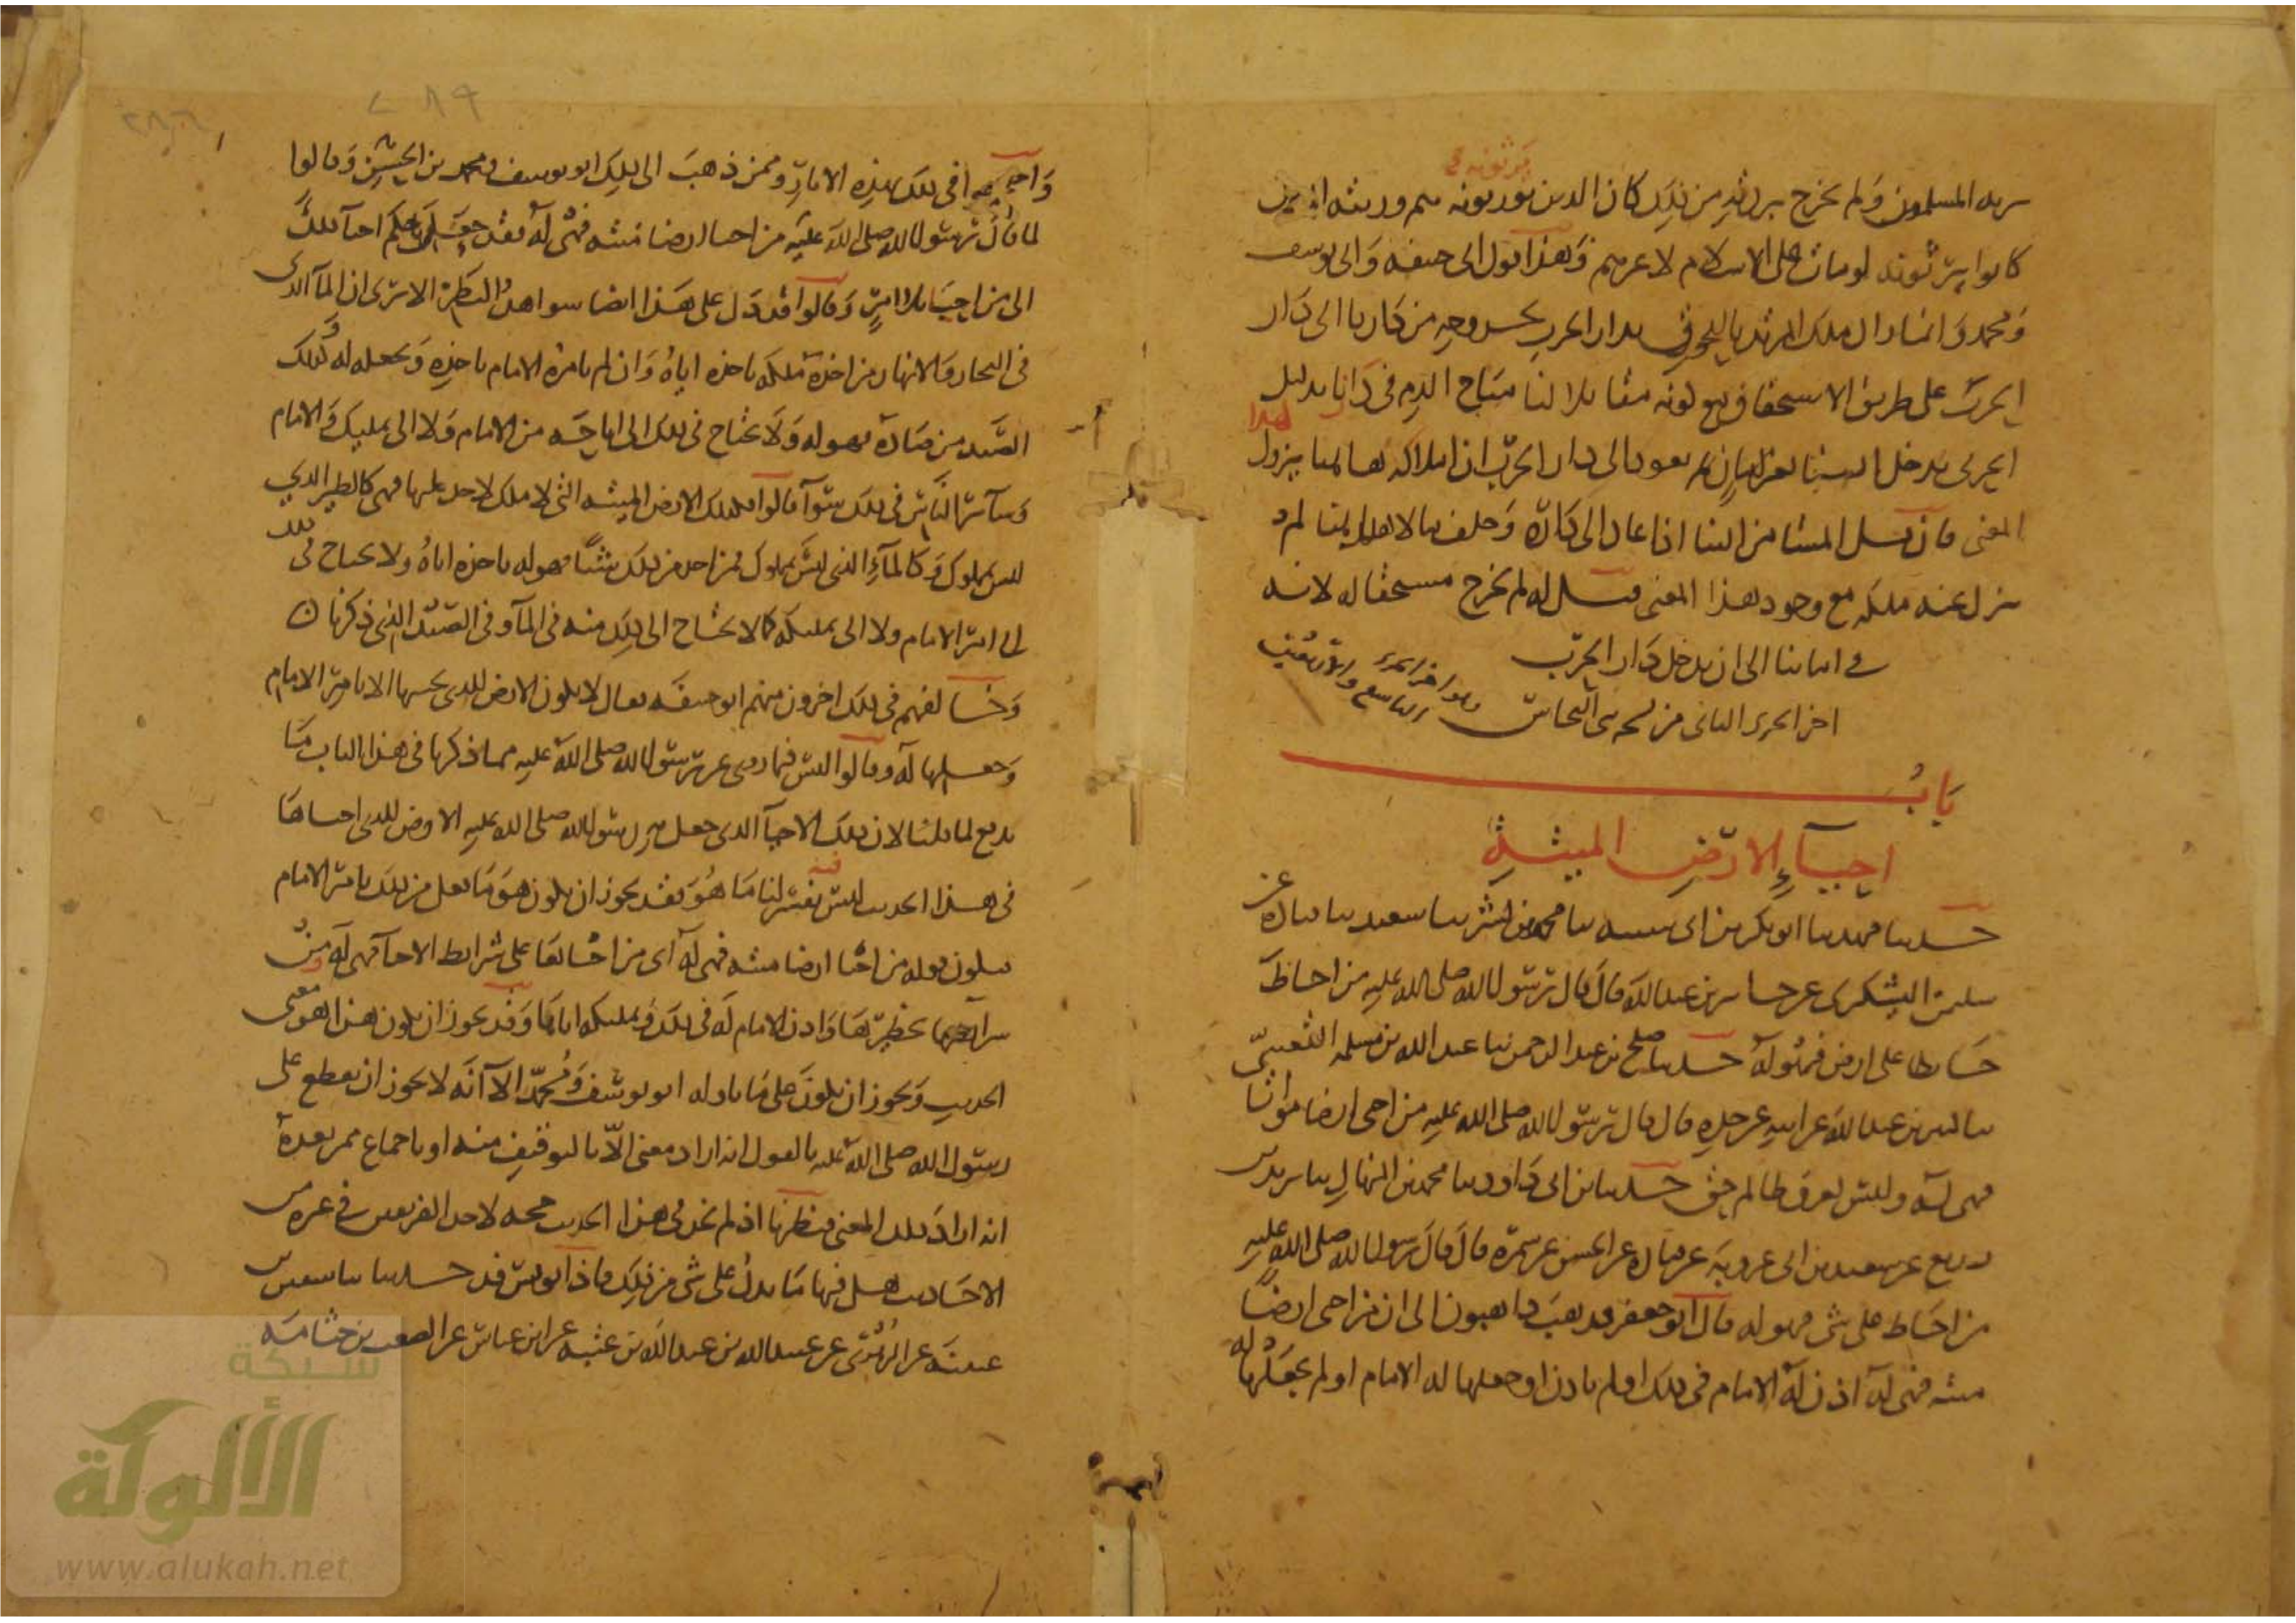 يرثه المسلمون ولم يخرج بردته من ذلك كان الذين يورثونه هم ورثته الذين
يرثونه
كانوا يرثونه لو مات على الاسلام لا غيرهم وهذا قول ابي حنيفة وابي يوسف
ومحمد وانما زال ملك المرتد باللحوق بدار الحرب لخروجه من دارنا الى دار
الحرب على طريق الاستحقاق مع كونه مقاتلا لنا مباح الدم في دارنا بدليل
الحربي يدخل الينا بامان ثم يعود الى دار الحرب ان املاكه هاهنا يزول لهذا
المعنى فان قيل المستامن الينا اذا عاد الى داره وخلف مالا هاهنا لم
يزل عنه ملكه مع وجود هذا المعنى قيل له لم يخرج مستحقا له لانه
في اماننا الى ان يدخل دار الحرب
اخر الجزء الثاني من نسخة النحاس
وهو اخر الجزء التاسع والاربعين
باب
احياء الارض الميتة
حدثنا فهد نا ابو بكر بن ابي شيبه نا محمد بن بشر نا سعيد نا قتادة عن
سليمن اليشكري عن جابر بن عبد الله قال قال رسول الله صلى الله عليه من احاط
حائطا على ارض فهو له حدثنا صلح بن عبد الرحمن نا عبد الله بن مسلمه القعنبي
نا كثير بن عبد الله عن ابيه عن جده قال قال رسول الله صلى الله عليه من احيى ارضا مواتا
فهي له وليس لعرق ظالم حق حدثنا بن ابي داود نا محمد بن المنهال نا يزيد بن
زريع عن سعيد بن ابي عروبة عن قتادة عن الحسن عن سمرة قال قال رسول الله صلى الله عليه
من احاط على شي فهو له قال ابو جعفر فذهب ذاهبون الى ان من احيى ارضا
ميته فهي له اذن له الامام في ذلك او لم ياذن او جعلها له الامام او لم يجعلها له
واحتجوا في ذلك بهذه الاثار وممن ذهب الى ذلك ابو يوسف ومحمد بن الحسن وقالوا
لما قال رسول الله صلى الله عليه من احيا ارضا ميته فهي له فقد جعل حكم احيا ذلك
الى من احب بلا امر وقالوا قد دل على هذا ايضا شواهد النظر الا ترى ان الما الذي
في البحار والانهار من اخذه ملكه باخذه اياه وان لم يامره الامام باخذه ويجعله له وكذلك
الصيد من صاده فهو له ولا يحتاج في ذلك الى اباحة من الامام ولا الى تمليك والامام
وسائر الناس في ذلك سوا قالوا فكذلك الارض الميته التي لا ملك لاحد عليها فهي كالطير الذي
ليس بمملوك وكالماء الذي ليس بمملوك فمن اخذ من ذلك شيئا فهو له باخذه اياه ولا يحتاج في ذلك
الى امر الامام ولا الى تمليكه كما لا يحتاج الى ذلك منه في الما وفي الصيد الذي ذكرنا
وخالفهم في ذلك اخرون منهم ابو حنيفه فقال لا يكون الارض للذي يحييها الا بامر الامام
وجعلها له وقالوا ليس فيما روي عن رسول الله صلى الله عليه مما ذكرنا في هذا الباب ما
يدفع لما قلنا لان ذلك الاحيا الذي جعل به رسول الله صلى الله عليه الارض للذي احياها
في هذا الحديث ليس فيه يفسر لنا ما هو فقد يجوز ان يكون هو ما فعل من ذلك بامر الامام
فيكون قوله من احيا ارضا ميته فهي له اي من احياها على شرائط الاحيا فهي له ومن
شرائطه تحظيرها واذن الامام له في ذلك وتمليكه اياها وقد يجوز ان يكون هذا هو معنى
الحديث ويجوز ان يكون على ما تاوله ابو يوسف ومحمد الا انه لا يجوز ان يقطع على
رسول الله صلى الله عليه بالقول انه اراد معنى الا بالتوقيف منه او باجماع ممن بعده
انه اراد ذلك المعنى فنظرنا اذ لم نجد في هذا الحديث حجه لاحد الفريقين في غيره من
الاحاديث هل فيها ما يدل على شي من ذلك فاذا يونس قد حدثنا نا سفين بن
عيينة عن الزهري عن عبيد الله بن عبد الله بن عتبه عن ابن عباس عن الصعب بن جثامه
شبكة
الألوكة
www.alukah.net